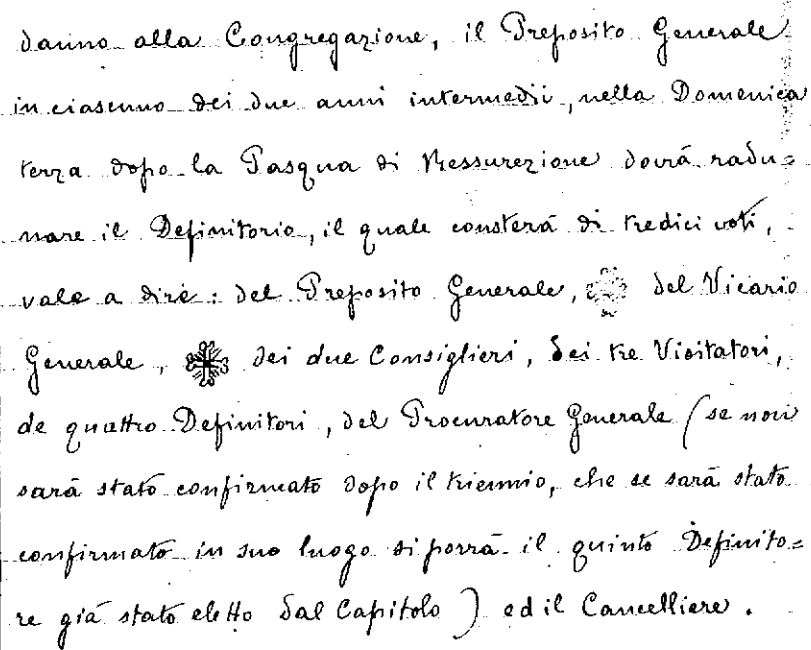 danno alla Congregazione, il Preposito Generale
in ciascuno dei due anni intermedii, nella Domenica
terza dopo la Pasqua di Ressurezione dovrà radu=
nare il Definitorio, il quale consterà di tredici voti,
vale a dire: del Preposito Generale, del Vicario
Generale, dei due Consiglieri, dei tre Visitatori,
de quattro Definitori, del Procuratore Generale (se non
sarà stato confirmato dopo il triennio, che se sarà stato
confirmato in suo luogo si porrà il quinto Definito=
re già stato eletto dal Capitolo) ed il Cancelliere.